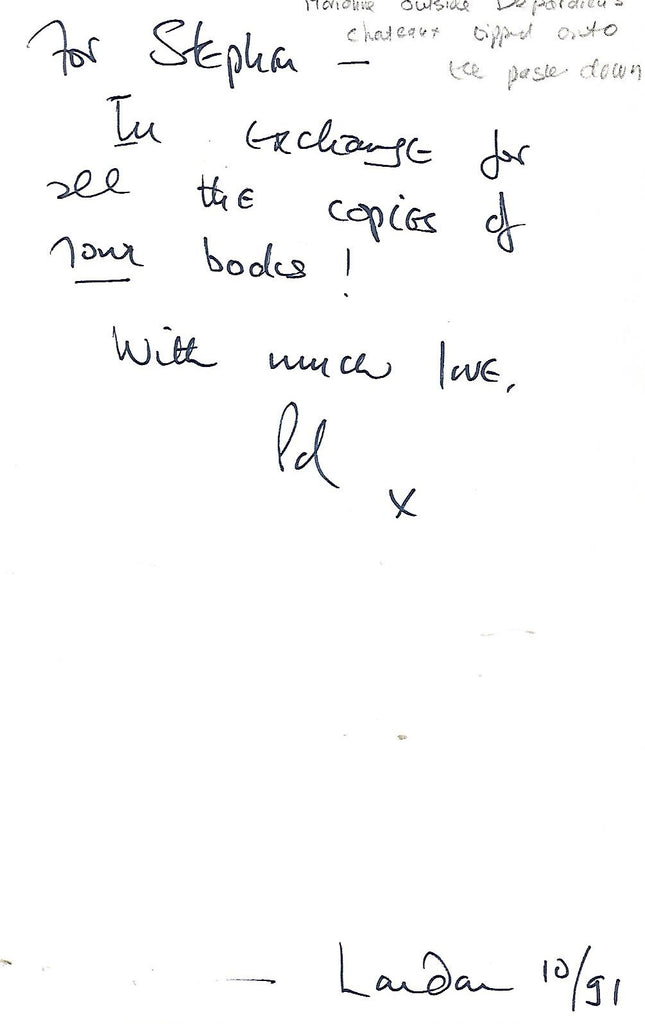 outside Depardieu's
chateaux tipped onto
the paste down
For Stephen —
In exchange for
all the copies of
your books!
With much love,
x
— London 10/91